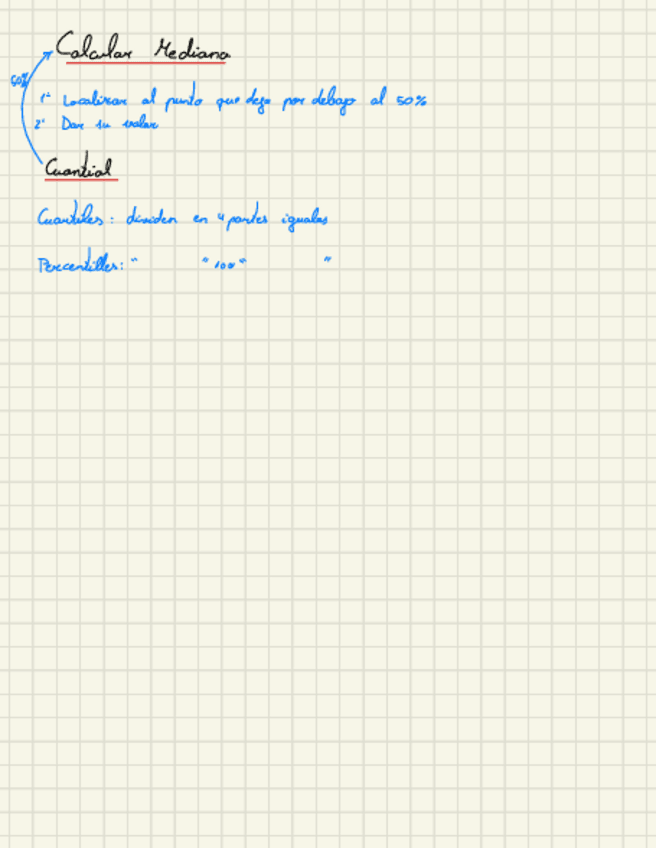 Calcular Mediana
50%
1º Localizar al punto que deja por debajo al 50%
2º Dar su valor
Cuantial
Cuartiles: dividen en 4 partes iguales
Percentilles: " " 100 " "